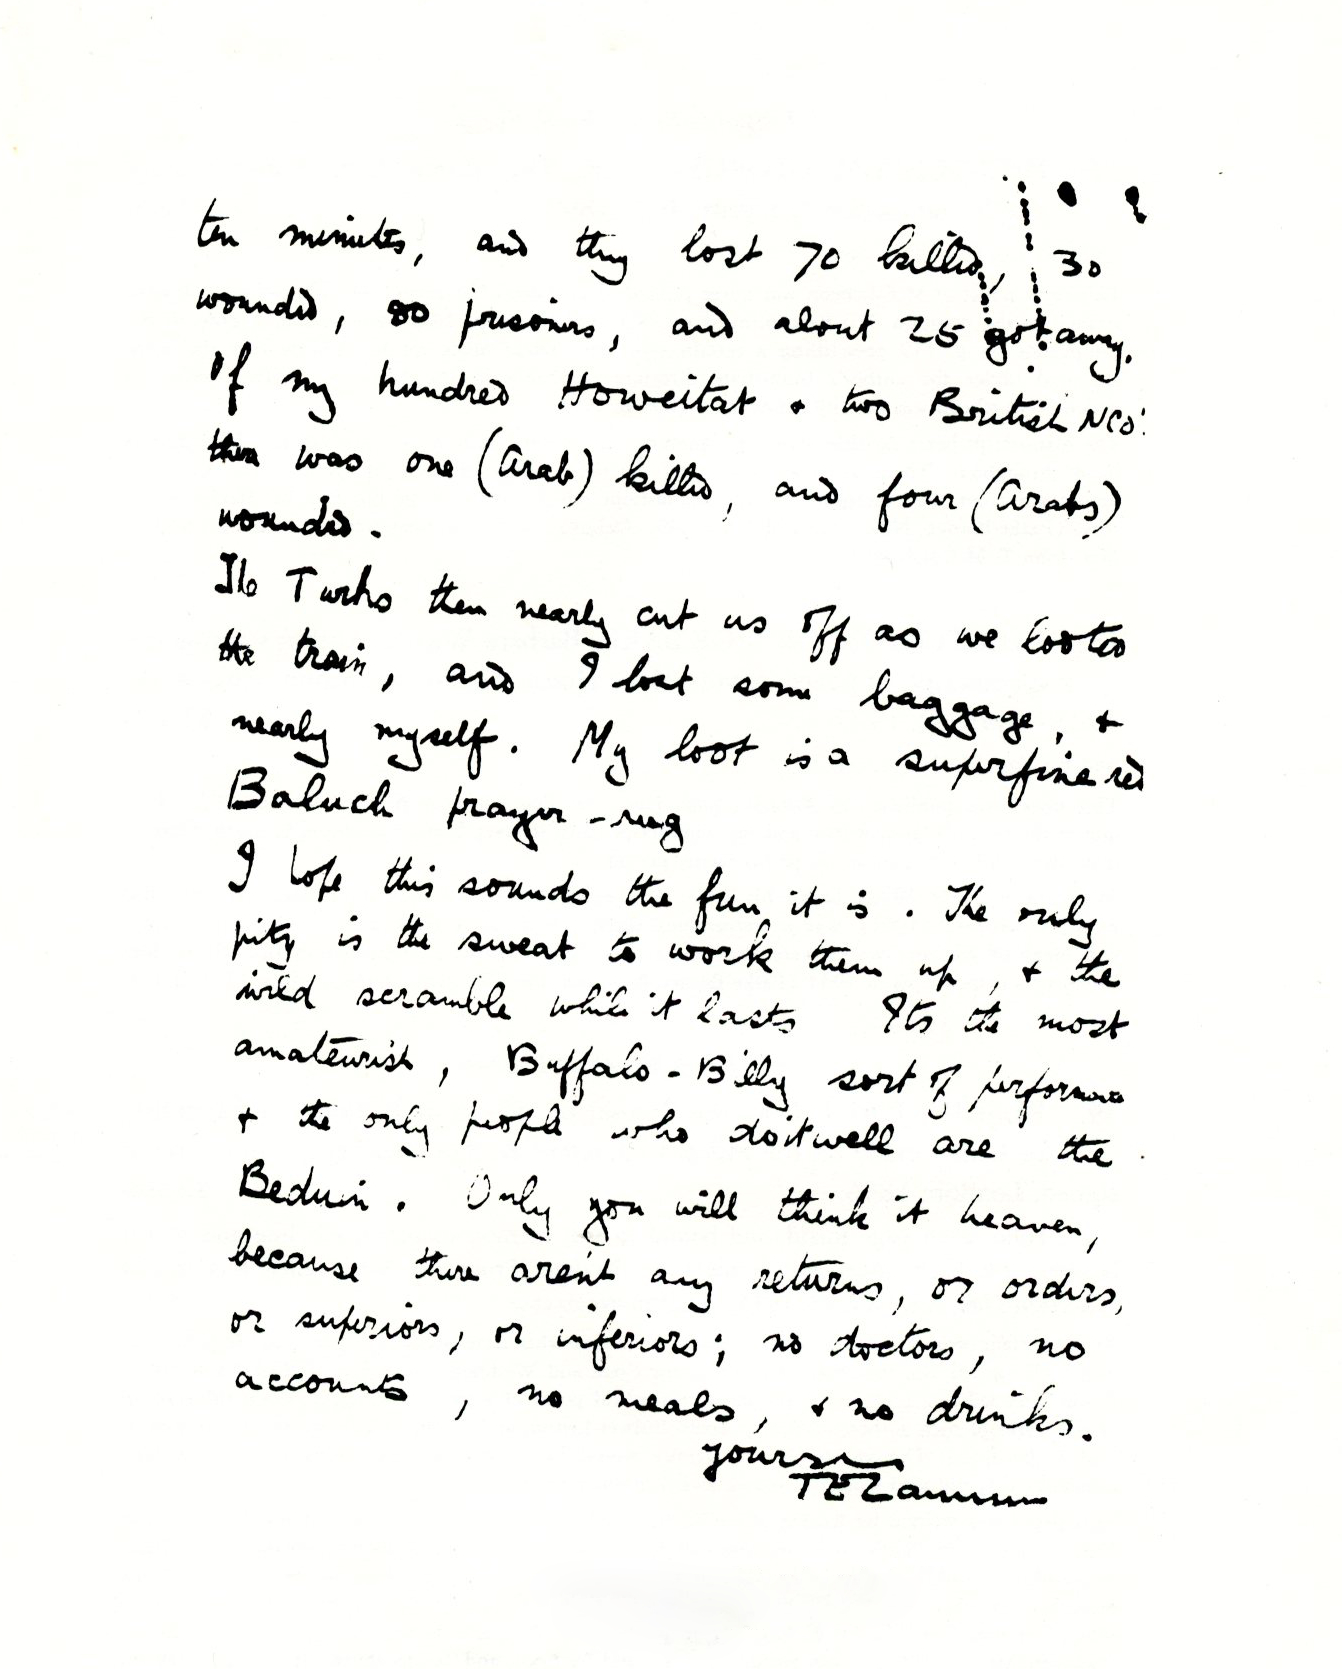 ten minutes, and they lost 70 killed, 30
wounded, 80 prisoners, and about 25 got away.
Of my hundred Howeitat + two British NCO'
there was one (Arab) killed, and four (Arabs)
wounded.
The Turks then nearly cut us off as we looted
the train, and I lost some baggage, +
nearly myself. My loot is a superfine red
Baluch prayer-rug
I hope this sounds the fun it is. The only
pity is the sweat to work them up, + the
wild scramble while it lasts Its the most
amateurish, Buffalo-Billy sort of performance
+ the only people who do it well are the
Beduin. Only you will think it heaven,
because there aren't any returns, or orders,
or superiors, or inferiors; no doctors, no
accounts, no meals, + no drinks.
yours
TELawrence